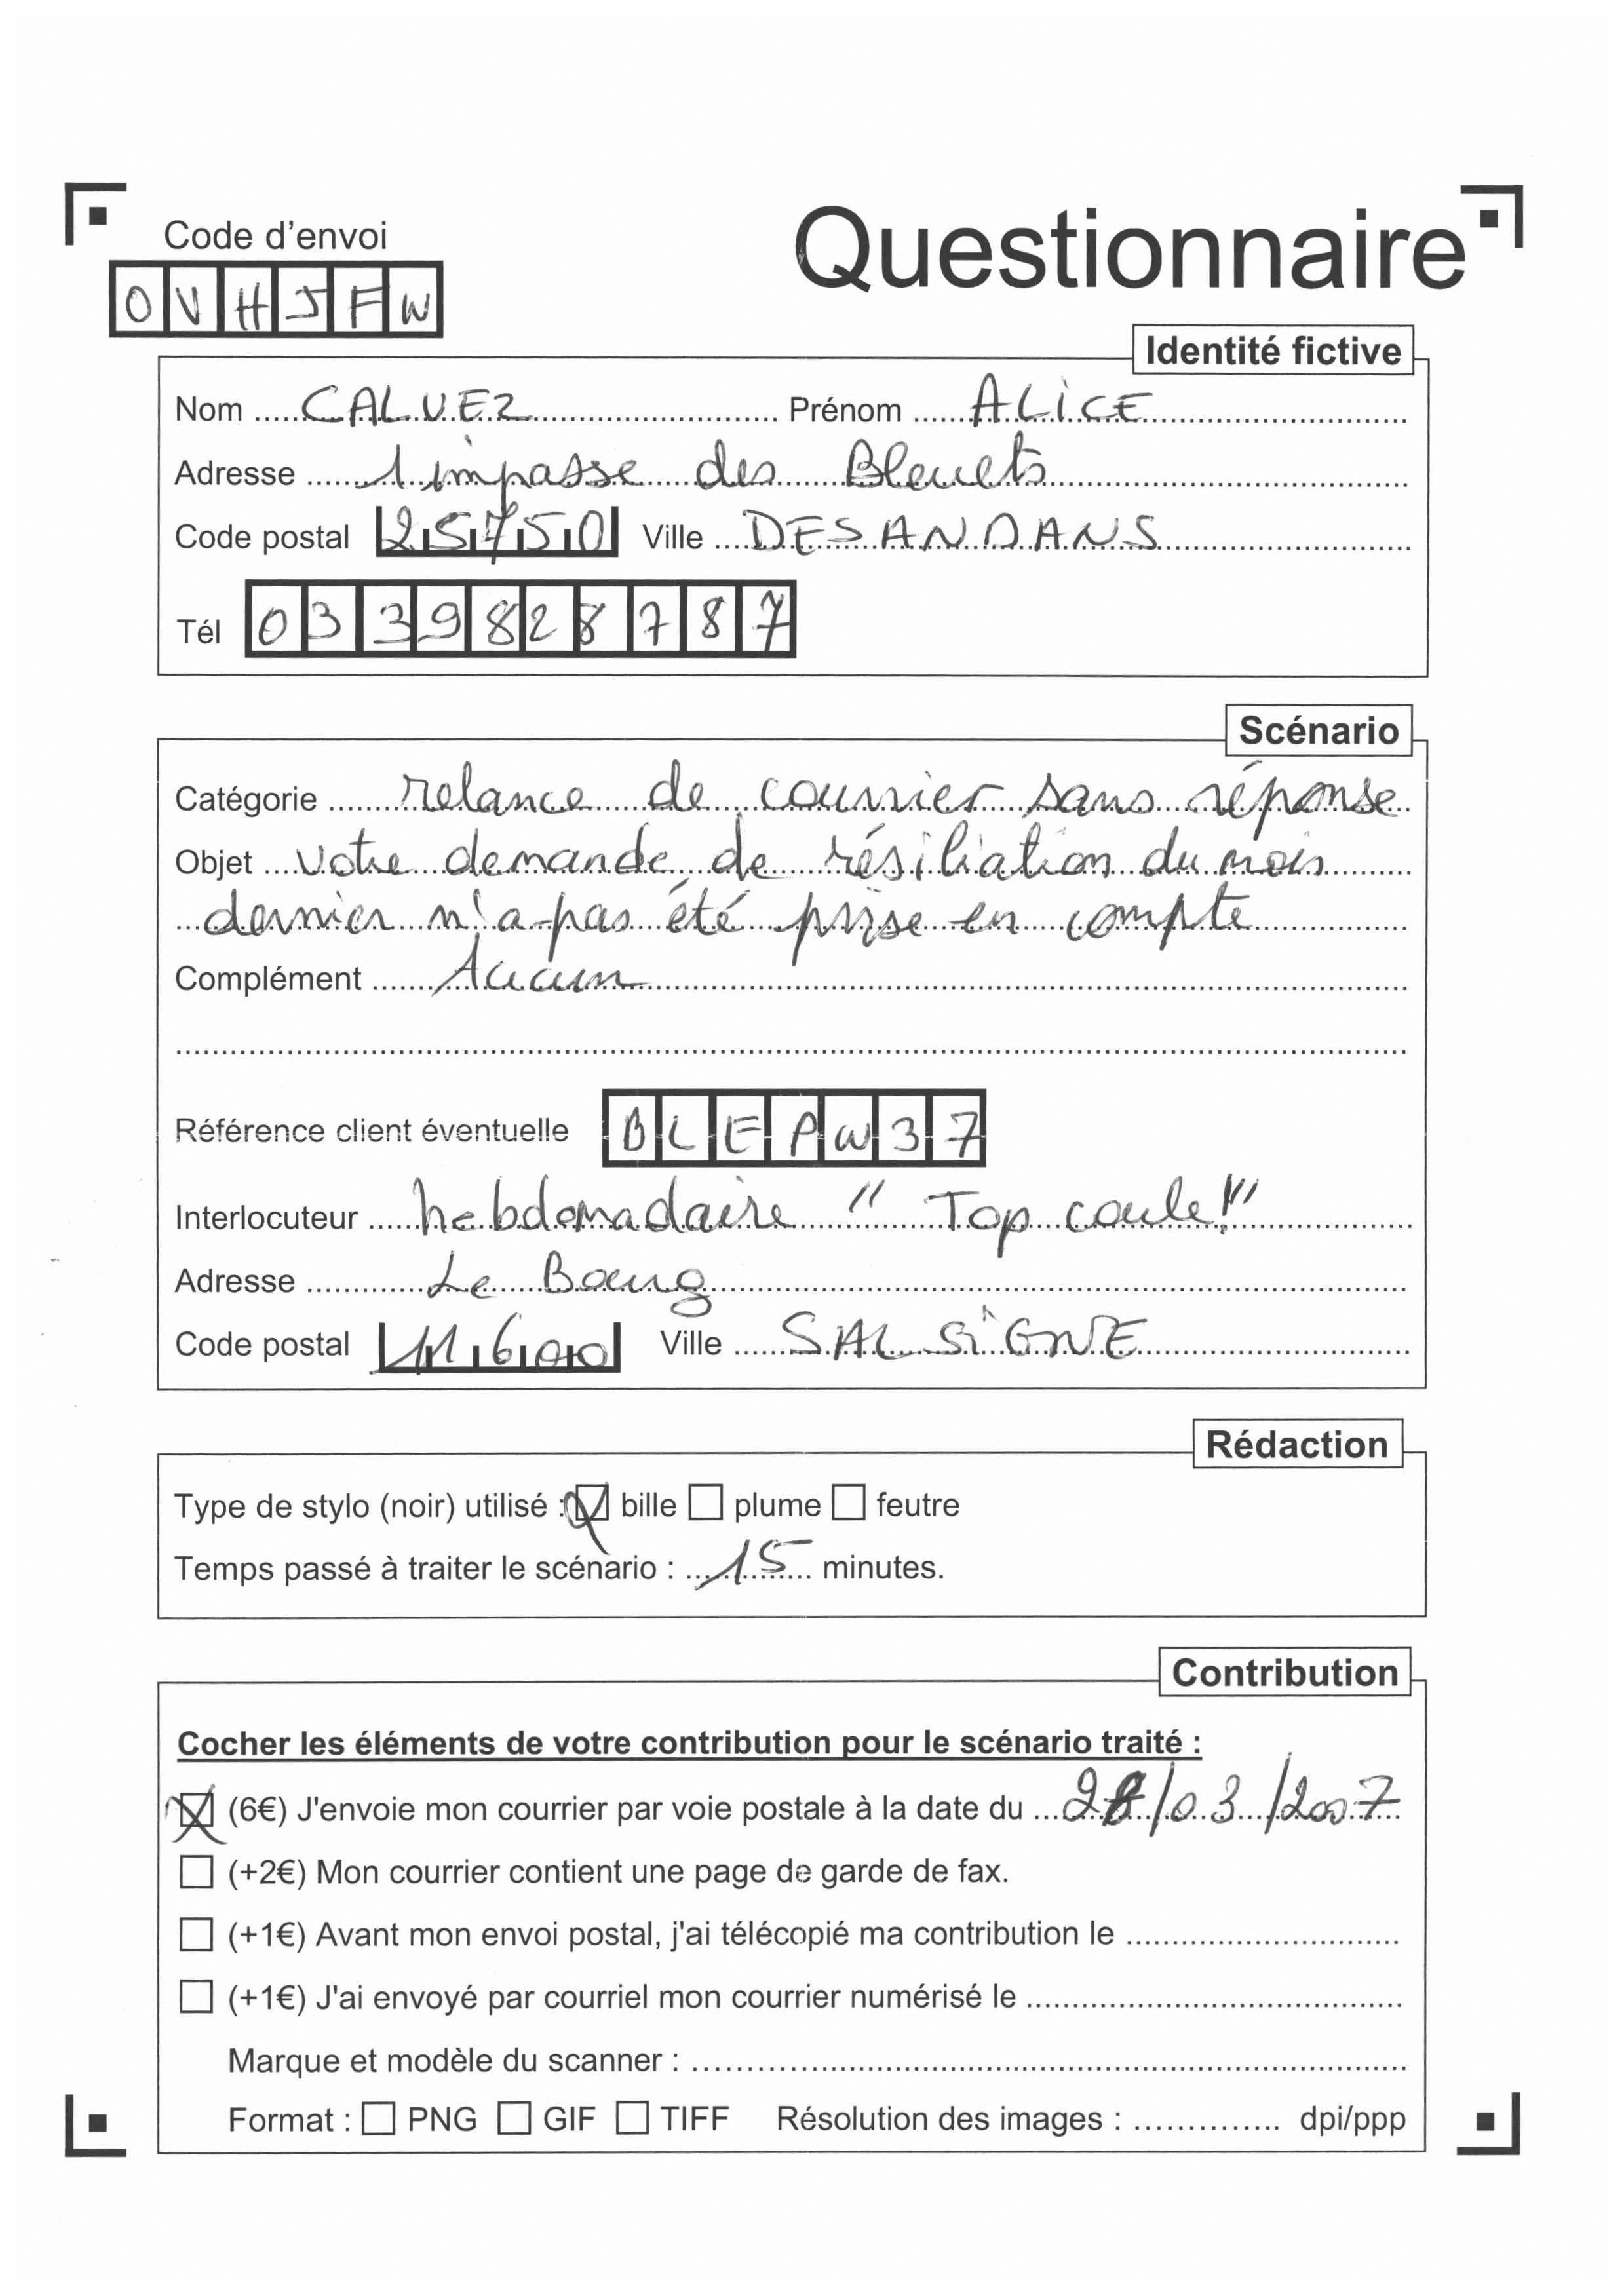 Code d'envoi
Questionnaire
OVHJFW
Identité fictive
Nom CALVEZ Prénom ALICE
Adresse 1 impasse des Bleuets
Code postal 25750 Ville DESANDANS
Tél 0339828787
Scénario
Catégorie relance de courrier sans réponse
Objet votre demande de résiliation du mois
dernier n'a pas été prise en compte
Complément Aucun
Référence client éventuelle BLEPW37
Interlocuteur hebdomadaire "Top coule!"
Adresse Le Bourg
Code postal 11600 Ville SALSIGNE
Rédaction
Type de stylo (noir) utilisé : bille plume feutre
Temps passé à traiter le scénario : 15 minutes.
Contribution
Cocher les éléments de votre contribution pour le scénario traité :
(6€) J'envoie mon courrier par voie postale à la date du /03/2007
(+2€) Mon courrier contient une page de garde de fax.
(+1€) Avant mon envoi postal, j'ai télécopié ma contribution le
(+1€) J'ai envoyé par courriel mon courrier numérisé le
Marque et modèle du scanner :
Format : PNG GIF TIFF Résolution des images : dpi/ppp